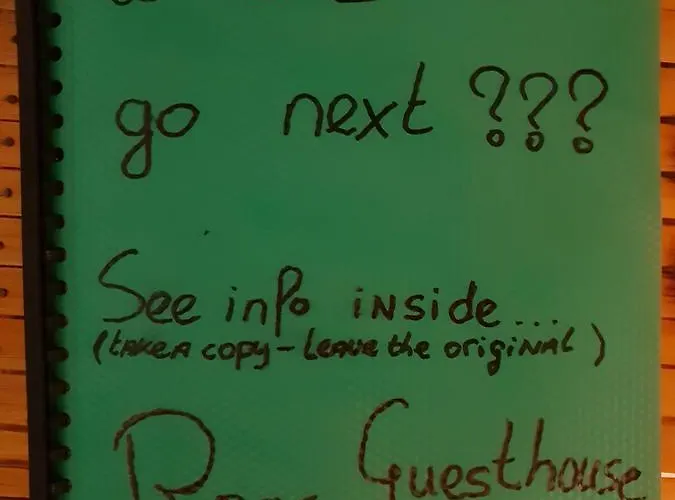 go next ???
See info inside...
(take a copy - Leave the original)
Guesthouse